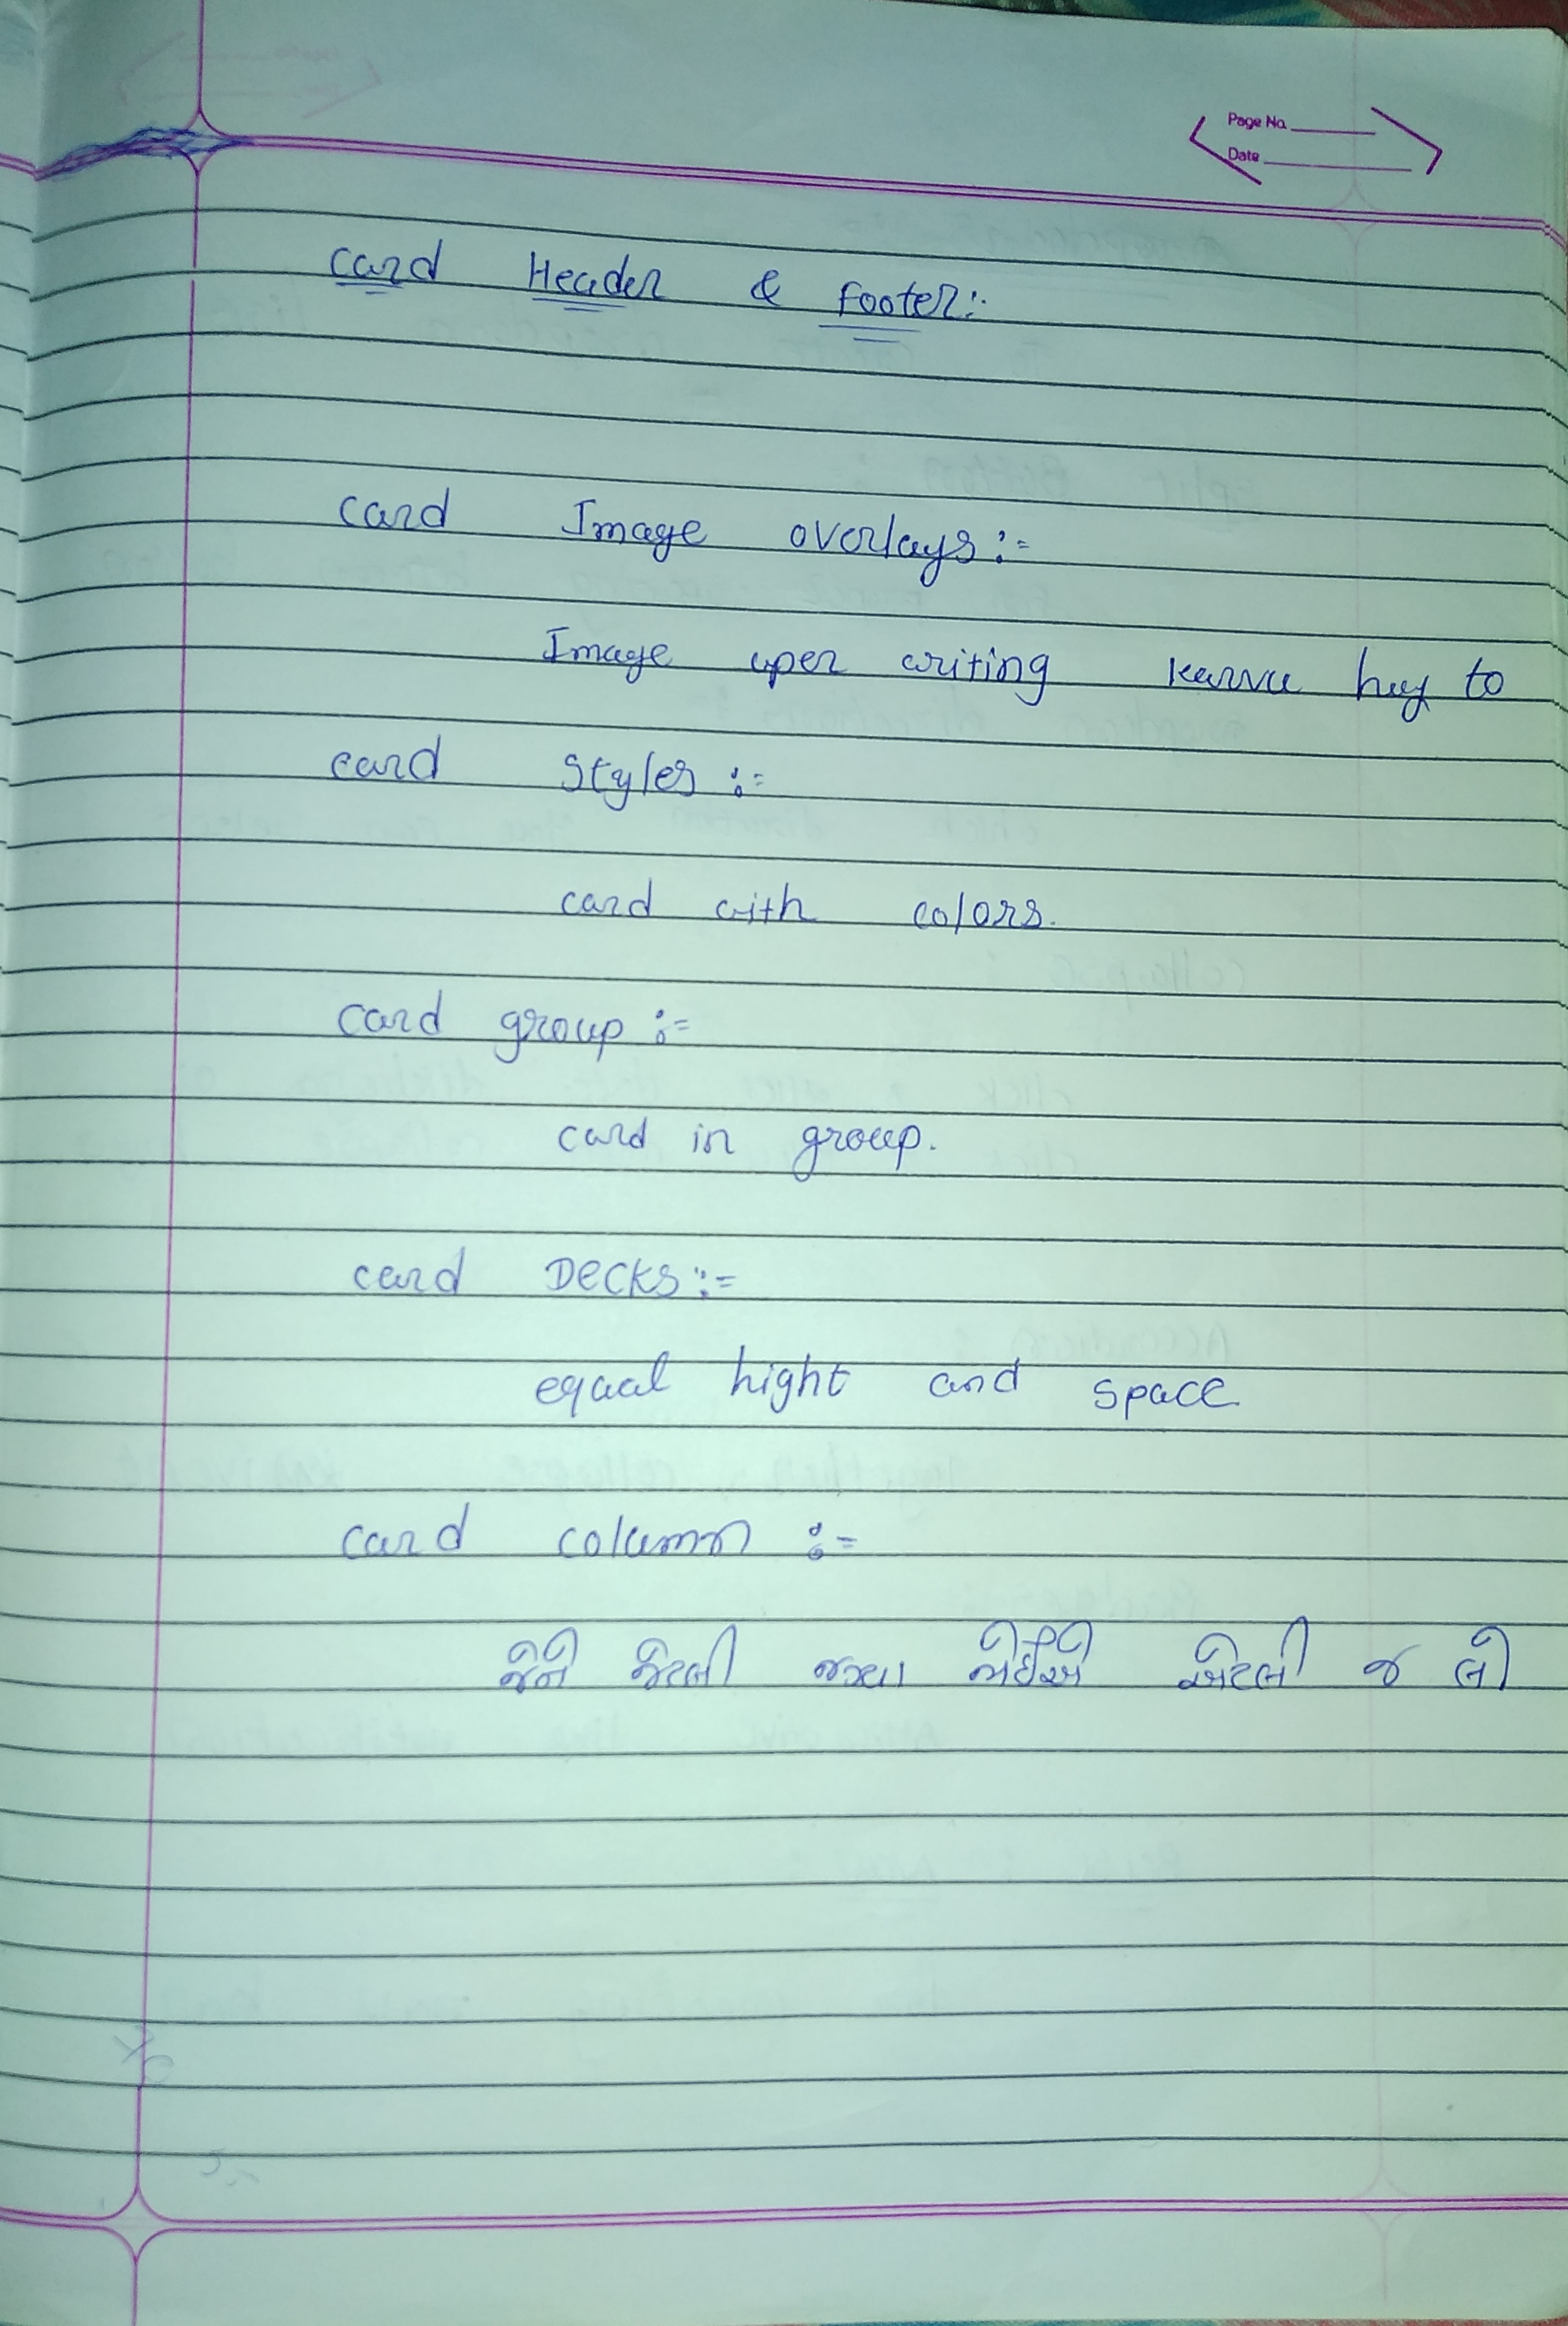 Page No.
Date
card Header & footer:-
card Image overlays :-
Image uper writing karvu hoy to
card styles :-
card with colors.
card group :-
card in group.
card DECKS :-
eqaul hight and space
card column :-
જેને જેટલી જગ્યા જોઈએ એટલી જ લે